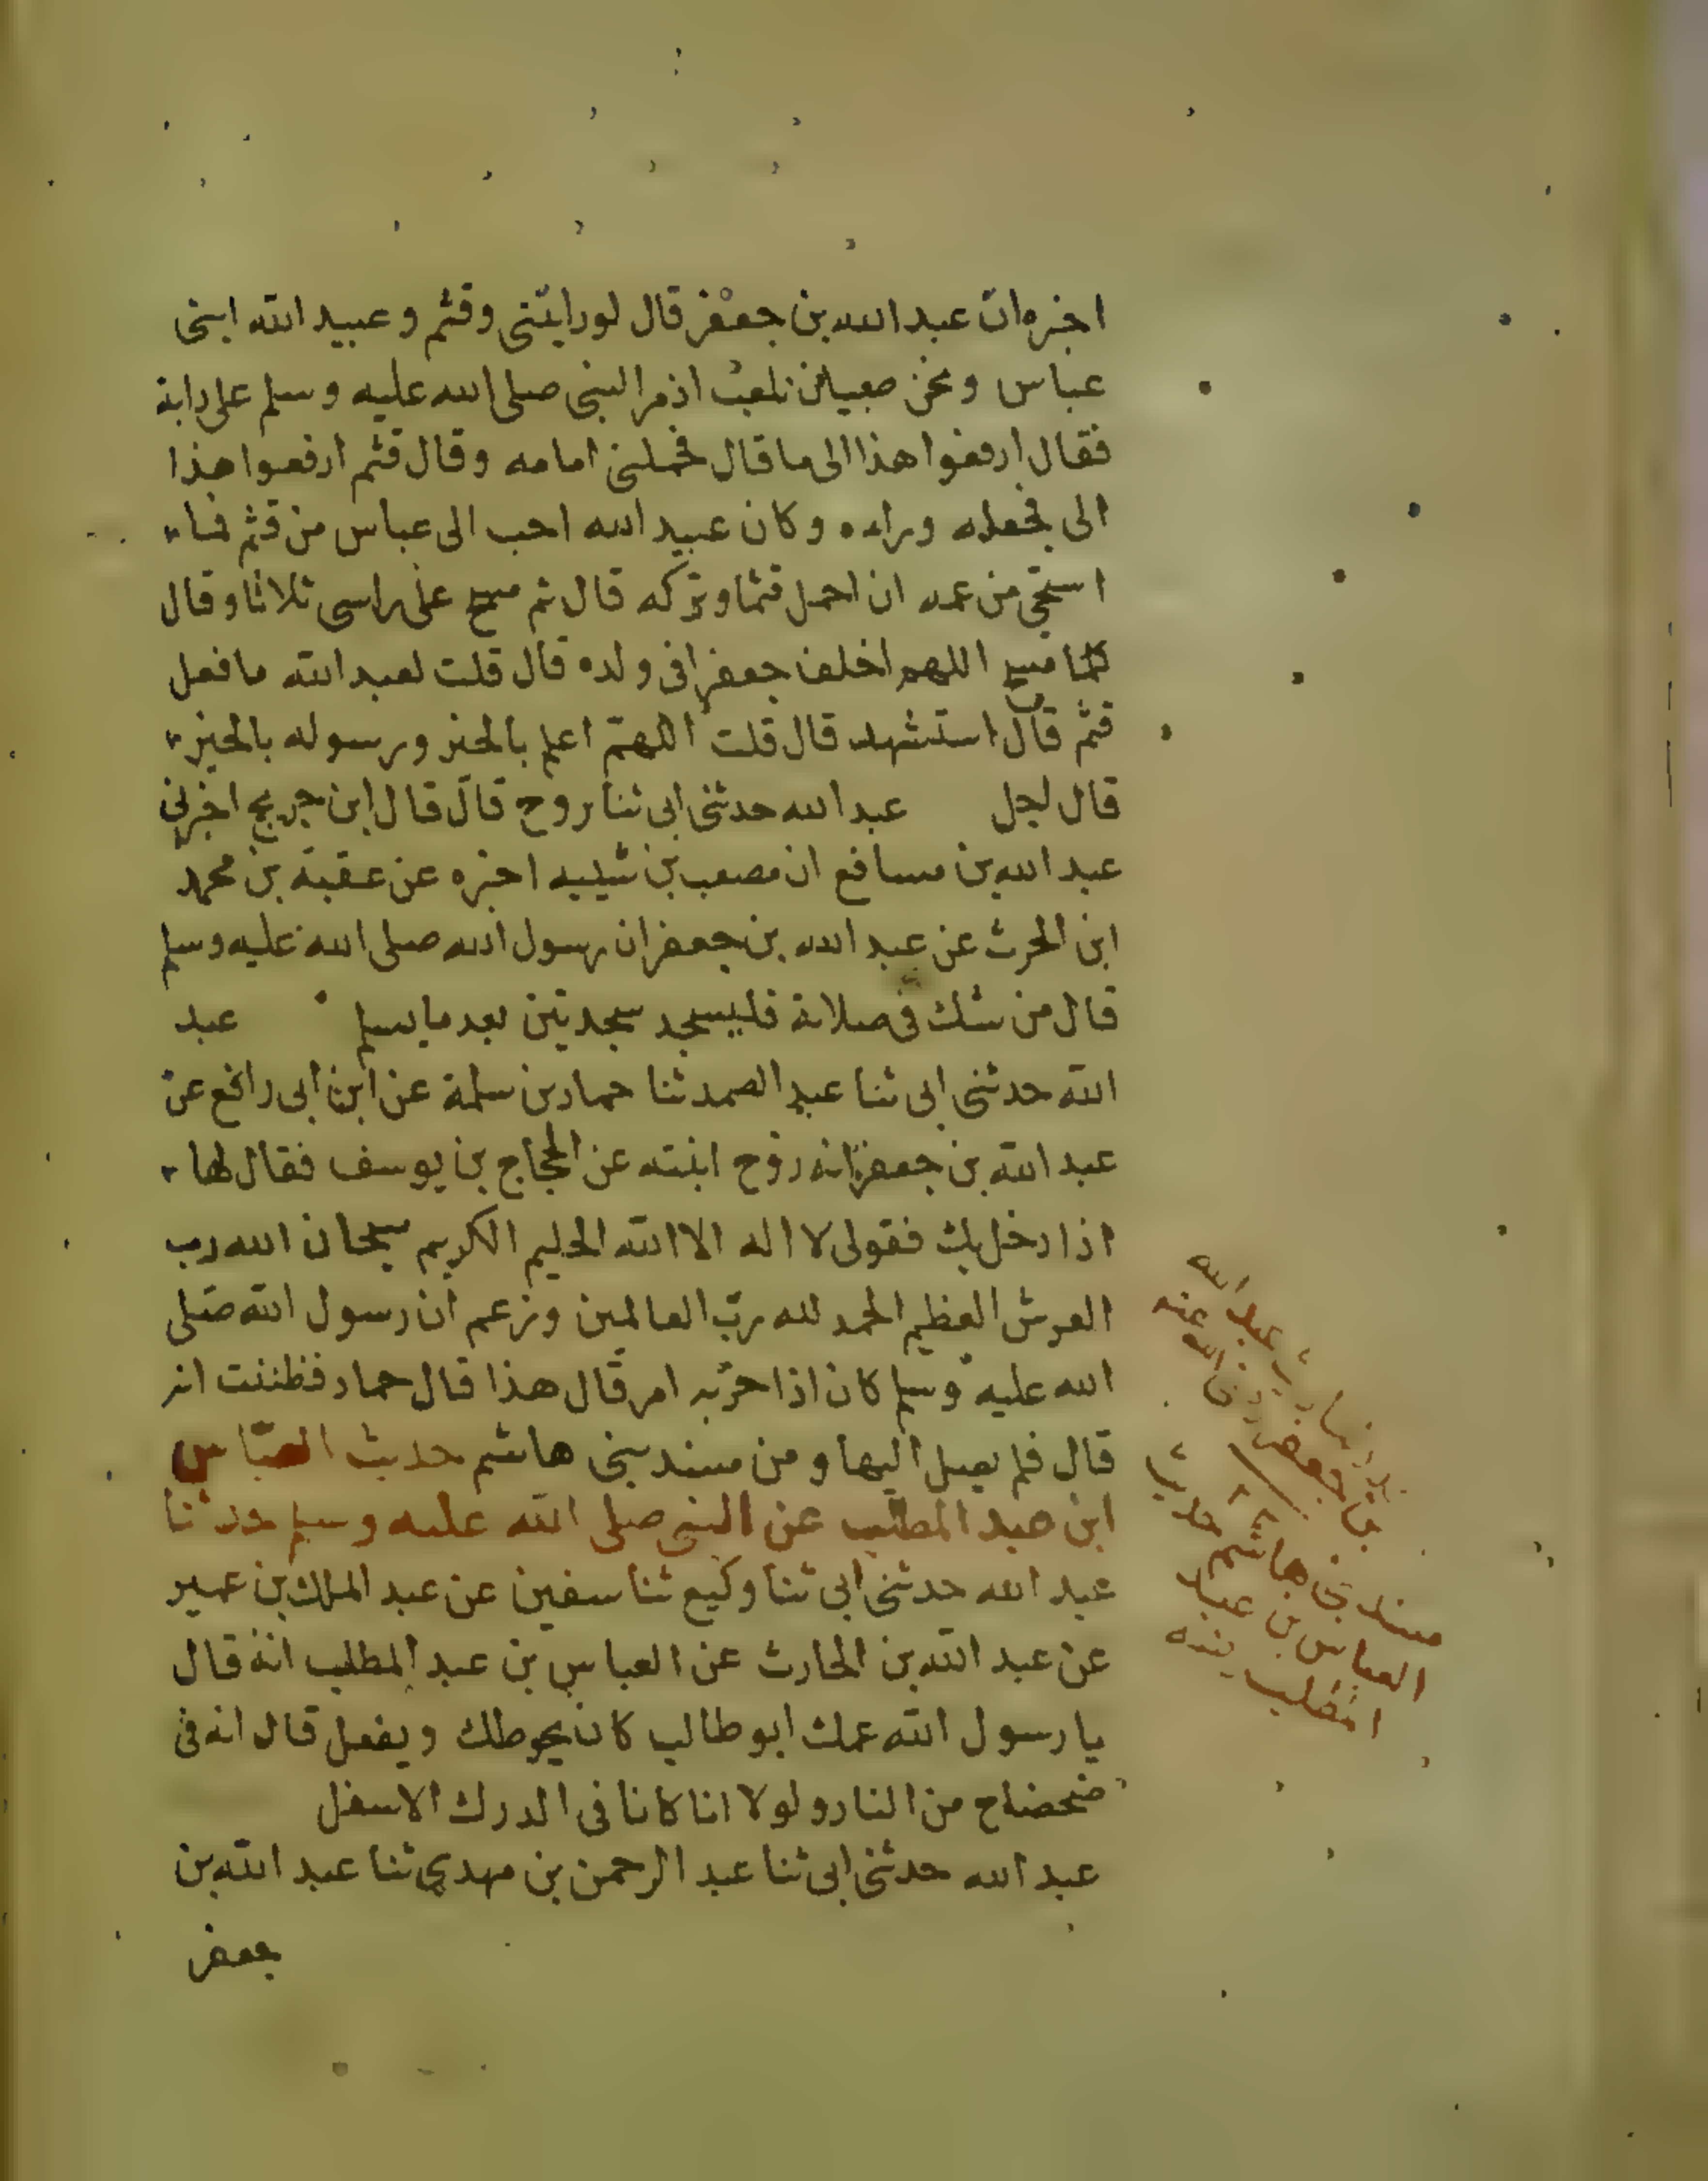 اخبره ان عبد الله بن جعفر قال لو رايتنى وقثم وعبيد الله ابنى
عباس ونحن صبيان نلعب اذ مر النبى صلى الله عليه وسلم على دابة
فقال ارفعوا هذا الى ما قال فحملنى امامه وقال قثم ارفعوا هذا
الى فجعله وراءه وكان عبيد الله احب الى عباس من قثم فما
استحى من عمه ان احمل قثما وتركه قال ثم مسح على راسى ثلاثا وقال
كلما مسح اللهم اخلف جعفرا فى ولده قال قلت لعبد الله ما فعل
قثم قال استشهد قال قلت اللهم اعلم بالخبر ورسوله بالخير
قال اجل عبد الله حدثنى ابى ثنا روح قال قال ابن جريج اخبرنى
عبد الله بن مسافع ان مصعب بن شيبه اخبره عن عقبة بن محمد
ابن الحرث عن عبد الله بن جعفر ان رسول الله صلى الله عليه وسلم
قال من شك فى صلاته فليسجد سجدتين بعد ما يسلم عبد
الله حدثنى ابى ثنا عبد الصمد ثنا حماد بن سلمة عن ابن ابى رافع عن
عبد الله بن جعفر انه زوج ابنته عن الحجاج بن يوسف فقال لها
اذا دخل بك فقولى لا اله الا الله الحليم الكريم سبحان الله رب
العرش العظيم الحمد لله رب العالمين وزعم ان رسول الله صلى
الله عليه وسلم كان اذا حزبه امر قال هذا قال حماد فظننت انه
قال فلم يصل اليها ومن مسند بنى هاشم حديث العباس
ابن عبد المطلب عن النبى صلى الله عليه وسلم حدثنا
عبد الله حدثنى ابى ثنا وكيع ثنا سفين عن عبد الملك بن عمير
عن عبد الله بن الحارث عن العباس بن عبد المطلب انه قال
يا رسول الله عمك ابو طالب كان يحوطك ويفعل قال انه فى
ضحضاح من النار ولولا انا كانا فى الدرك الاسفل
عبد الله حدثنى ابى ثنا عبد الرحمن بن مهدي ثنا عبد الله بن
جعفر
عبد الله
بن جعفر رضى الله عنه
مسند بنى هاشم حديث
العباس بن عبد
المطلب